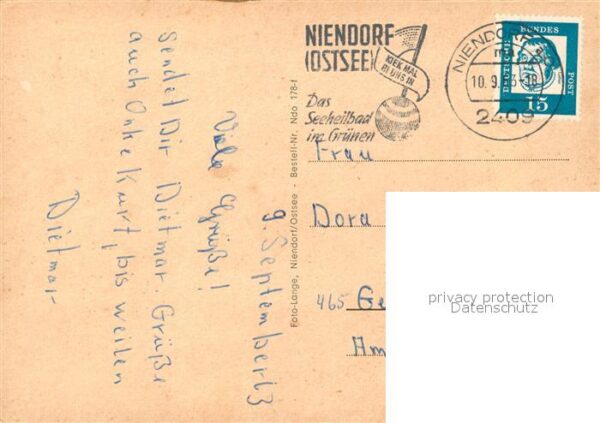 NIENDORF
(OSTSEE)
KIEK MAL
BI UNS IN
Das
Seeheilbad
im Grünen
NIENDORF
10.9.
2409
DEUTSCHE
BUNDES
POST
15
Frau
Dora
465 Ge
Am
privacy protection
Datenschutz
Foto-Lange, Niendorf/Ostsee - Bestell-Nr. Ndo 178-f
9. September 63
Viele Grüße!
sendet Dir Dietmar. Grüße
auch Onke Kurt, bis weilen
Dietmar